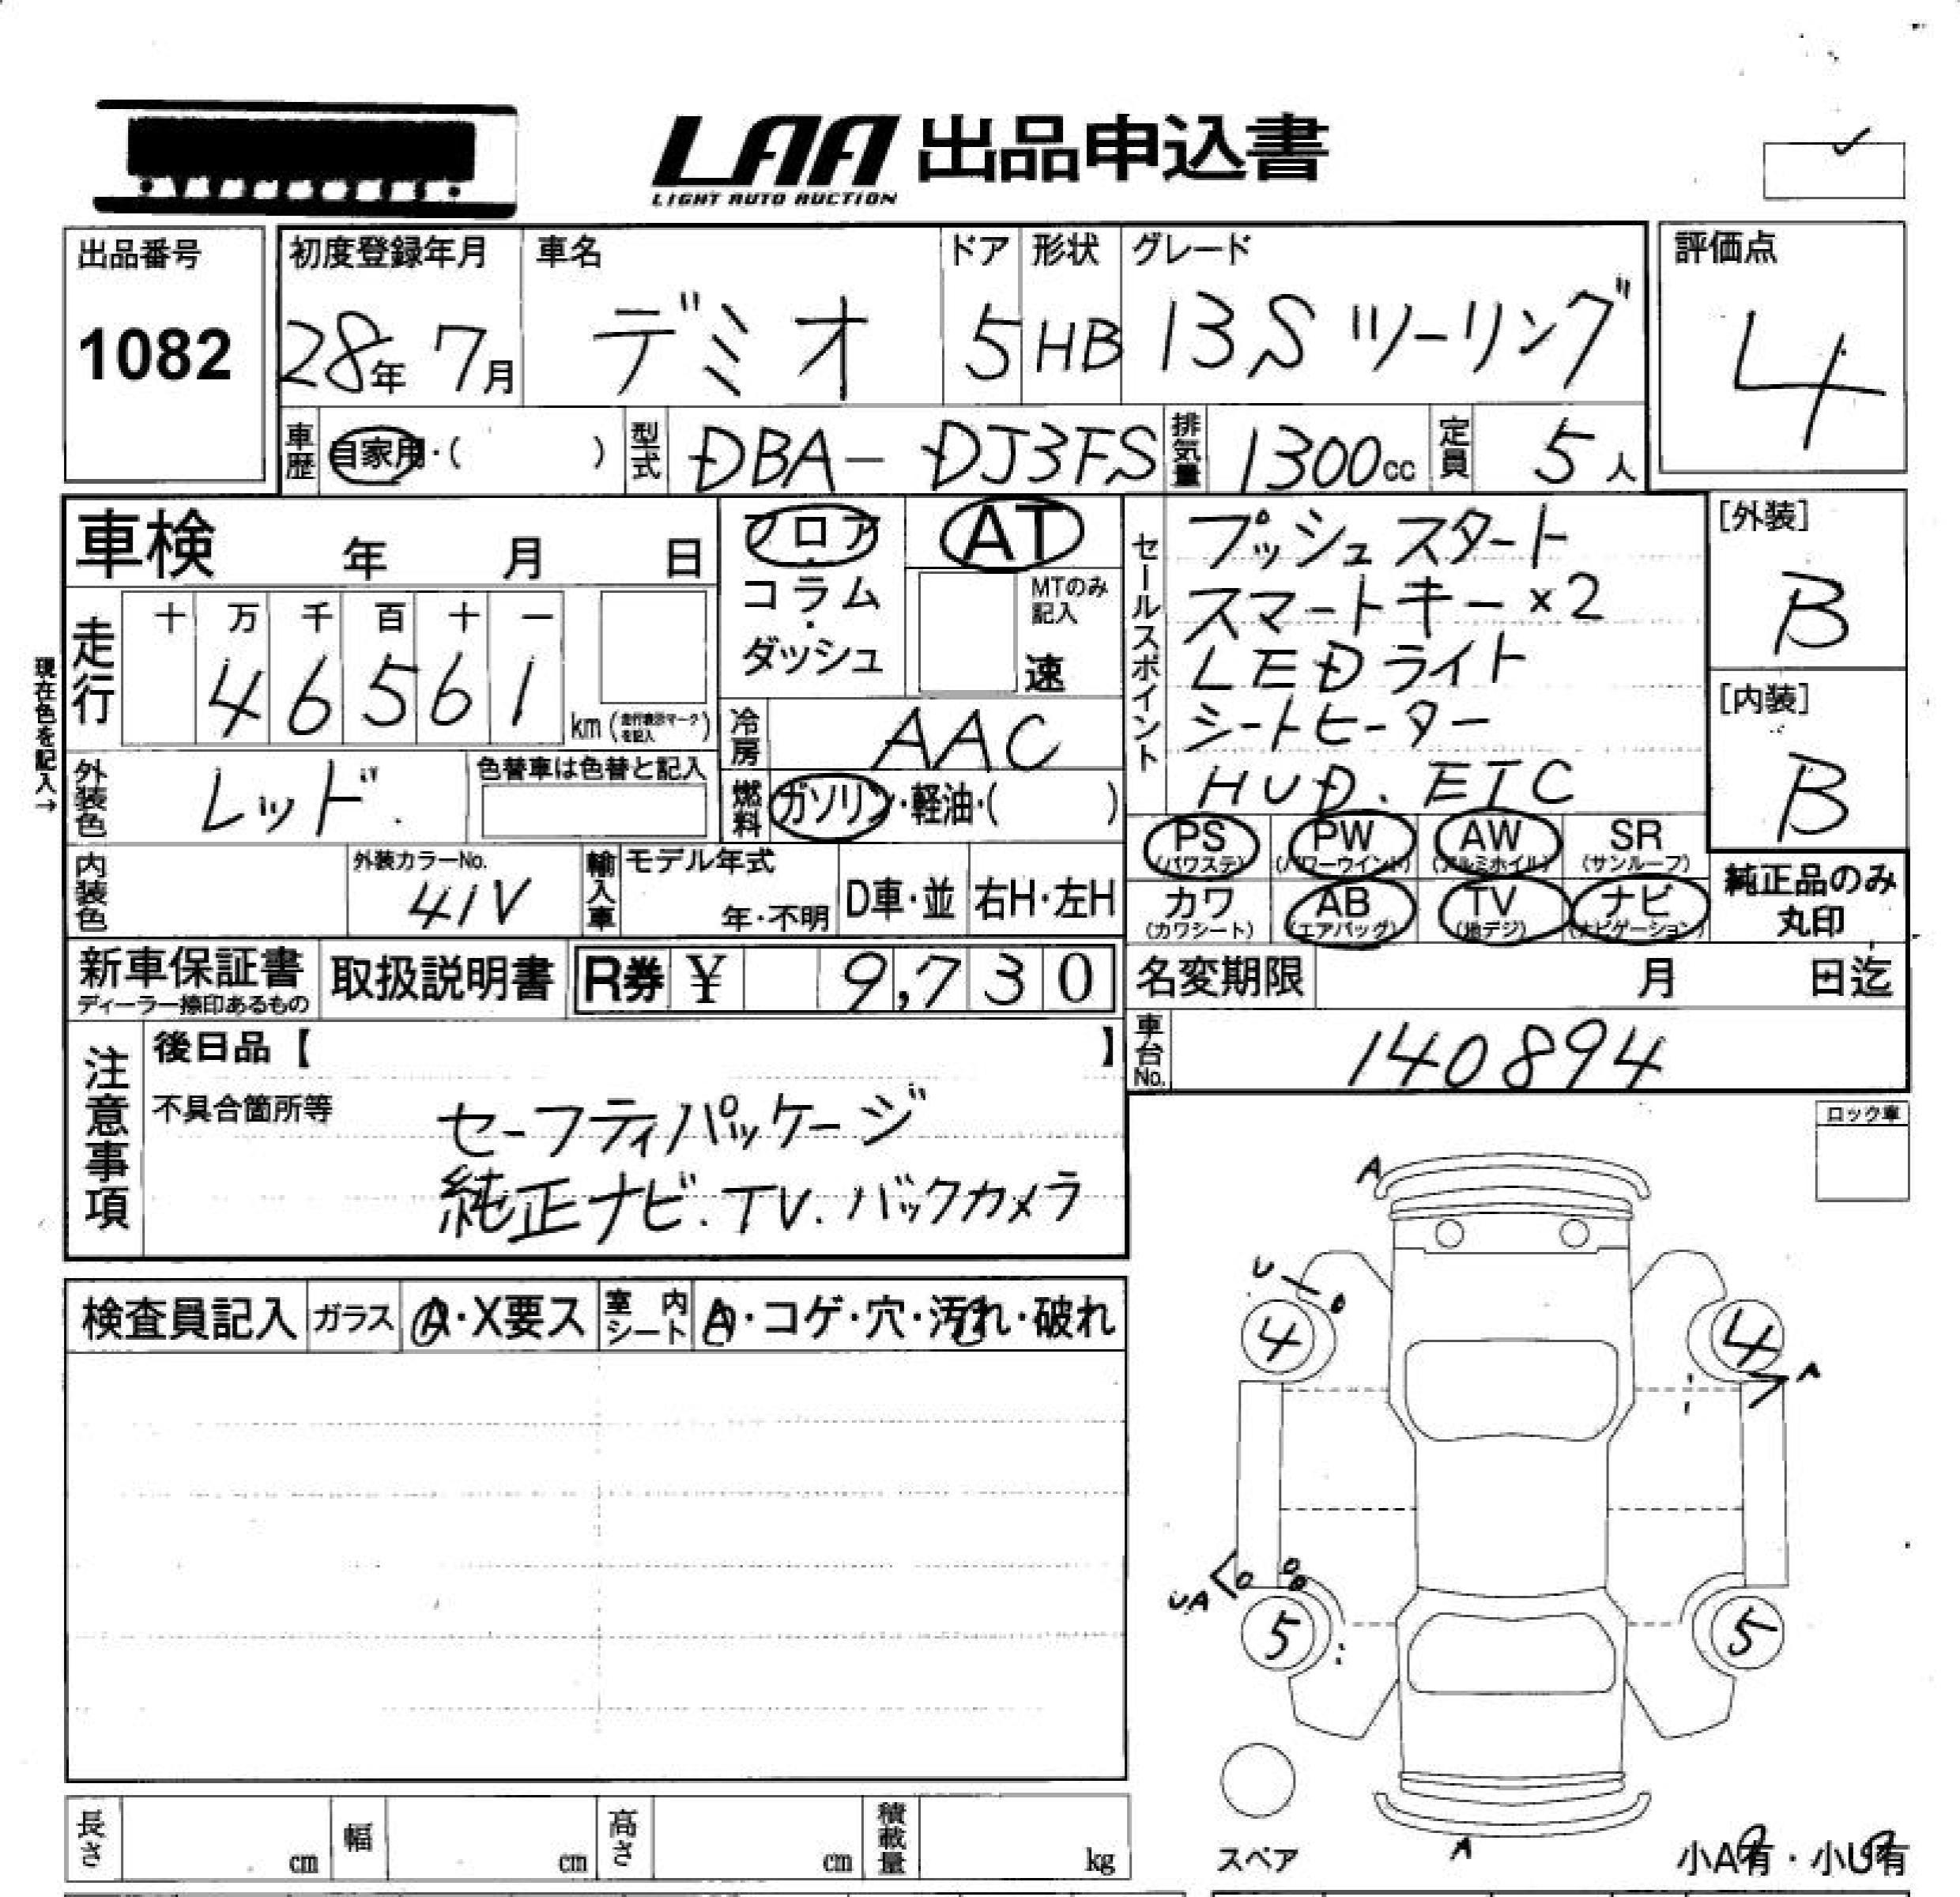 LAA 出品申込書
LIGHT AUTO AUCTION
出品番号
1082
初度登録年月
28年 7月
車名
デミオ
ドア
5
形状
HB
グレード
13S ツーリング
評価点
4
車歴 自家用・( )
型式 DBA- DJ3FS
排気量 1300cc
定員 5人
車検 年 月 日
フロア・コラム・ダッシュ
AT
MTのみ記入
速
セールスポイント
プッシュスタート
スマートキー×2
LEDライト
シートヒーター
HUD. ETC
[外装]
B
[内装]
B
現在色を記入→
走行
十 万 千 百 十 一
4 6 5 6 1
km (走行表示マークを記入)
冷房 AAC
外装色 レッド.
色替車は色替と記入
燃料 ガソリン・軽油・( )
PS (パワステ)
PW (パワーウインド)
AW (アルミホイル)
SR (サンルーフ)
カワ (カワシート)
AB (エアバッグ)
TV (地デジ)
ナビ (ナビゲーション)
純正品のみ
丸印
内装色
外装カラーNo.
41V
輸入車
モデル年式
年・不明
D車・並
右H・左H
新車保証書
ディーラー捺印あるもの
取扱説明書
R券 ¥ 9,730
名変期限 月 日迄
車台No. 140894
注意事項
後日品【 】
不具合箇所等
セーフティパッケージ
純正ナビ.TV.バックカメラ
ロック車
検査員記入 ガラス A・X要ス
室内シート A・コゲ・穴・汚れ・破れ
A
U
4
4
A
UA
5
5
A
スペア
小A有・小U有
長さ cm
幅 cm
高さ cm
積載量 kg